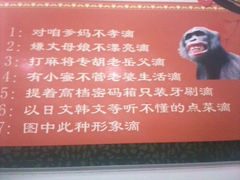 1：对咱爹妈不孝滴
2：嫌丈母娘不漂亮滴
3：打麻将专胡老岳父滴
4：有小蜜不管老婆生活滴
5：提着高档密码箱只装牙刷滴
6：以日文韩文等听不懂的点菜滴
7：图中此种形象滴